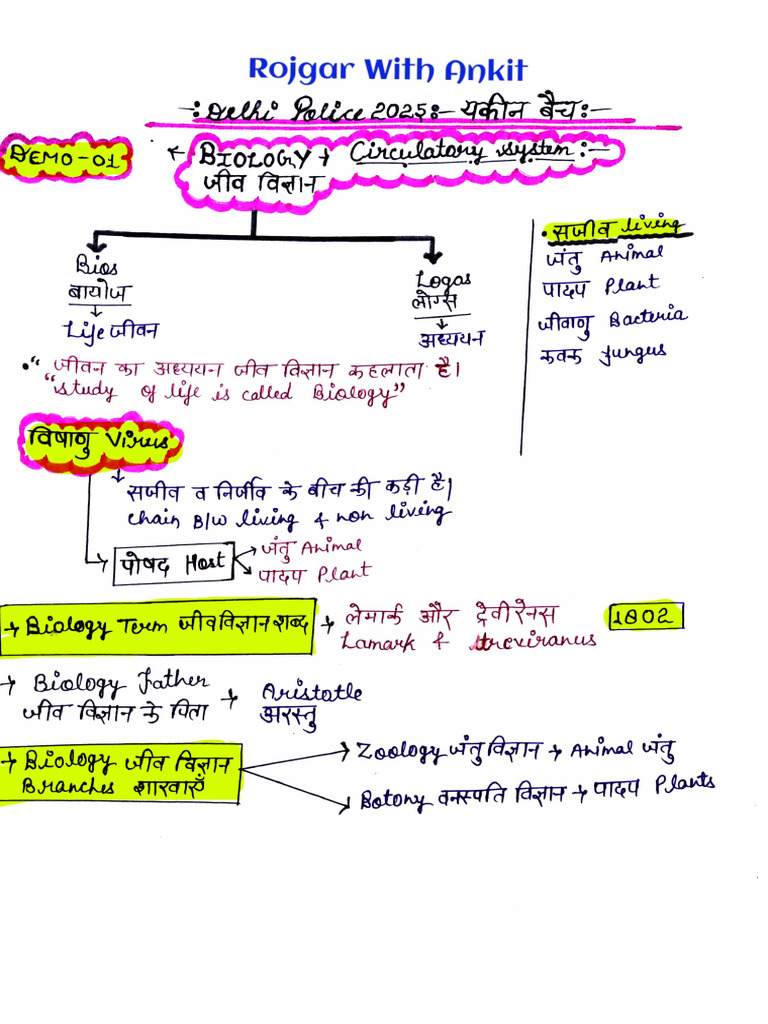 Rojgar With Ankit
-: Delhi Police 2025:- यकीन बैच:-
DEMO-01
BIOLOGY + Circulatory system:-
जीव विज्ञान
Bios
बायोज
Life जीवन
Logas
लोग्स
अध्ययन
• सजीव living
जंतु Animal
पादप Plant
जीवाणु Bacteria
कवक fungus
•" जीवन का अध्ययन जीव विज्ञान कहलाता है।
"study of life is called Biology"
विषाणु Virus
सजीव व निर्जीव के बीच की कड़ी है।
chain B/w living & non living
पोषद Host
जंतु Animal
पादप Plant
→ Biology Term जीव विज्ञान शब्द → लेमार्क और ट्रेवीरेनस 1802
Lamark & treviranus
→ Biology father → Aristotle
जीव विज्ञान के पिता अरस्तु
→ Biology जीव विज्ञान
Branches शाखाएँ
Zoology जंतु विज्ञान → Animal जंतु
Botony वनस्पति विज्ञान → पादप Plants